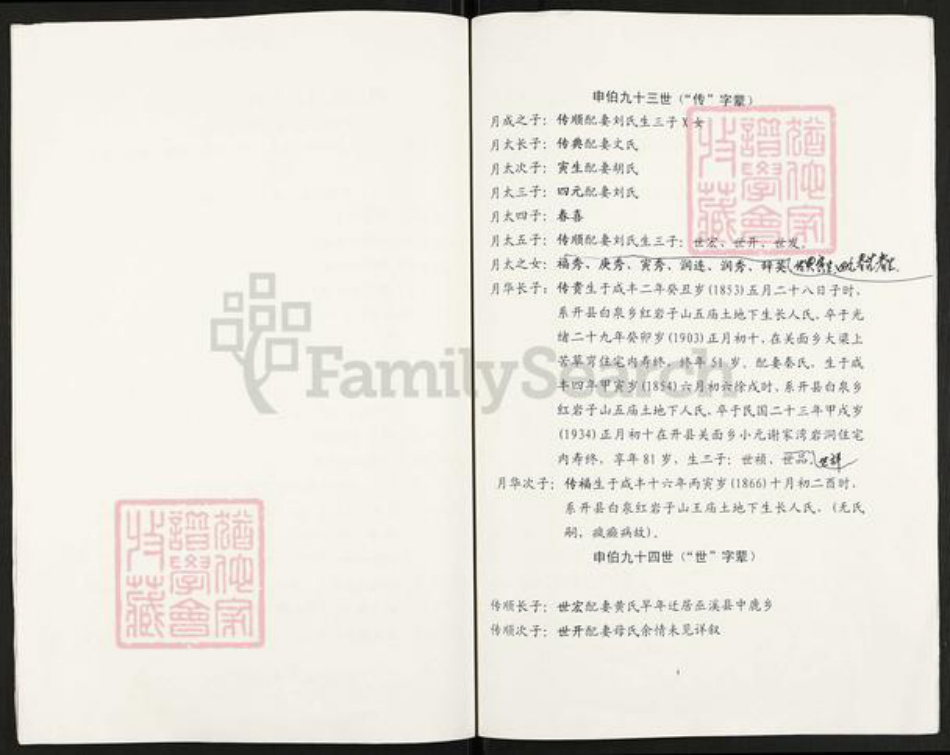 申伯九十三世(“传”字辈)
月成之子：传顺配妻刘氏生三子X女
月太长子：传典配妻文氏
月太次子：寅生配妻胡氏
月太三子：四元配妻刘氏
月太四子：春喜
月太五子：传顺配妻刘氏生三子：世宏、世开、世发。
月太之女：福秀、庚秀、寅秀、润连、润秀、辞英
月华长子：传贵生于成丰二年癸丑岁(1853)五月二十八日子时，
系开县白泉乡红岩子山五庙土地下生长人氏，卒于光
绪二十九年癸卯岁(1903)正月初十，在关面乡大梁上
苦草育住宅内寿终，终年51岁，配妻秦氏，生于成
丰四年甲寅岁(1854)六月初六徐戌时，系开县白泉乡
红岩子山五庙土地下人氏，卒于民国二十三年甲戌岁
(1934)正月初十在开县关面乡小元谢家湾岩洞住宅
内寿终，享年81岁，生二子：世祯、世品、世祥
月华次子：传福生于成丰十六年丙寅岁(1866)十月初二酉时，
系开县白泉红岩子山王庙土地下生长人氏，(无氏
嗣，疯癫病故)。
申伯九十四世(“世”字辈)
传顺长子：世宏配妻黄氏早年迁居巫溪县中鹿乡
传顺次子：世开配妻母氏余情未见详叙
FamilySearch
猶他家
譜學會
收藏
猶他家
譜學會
收藏